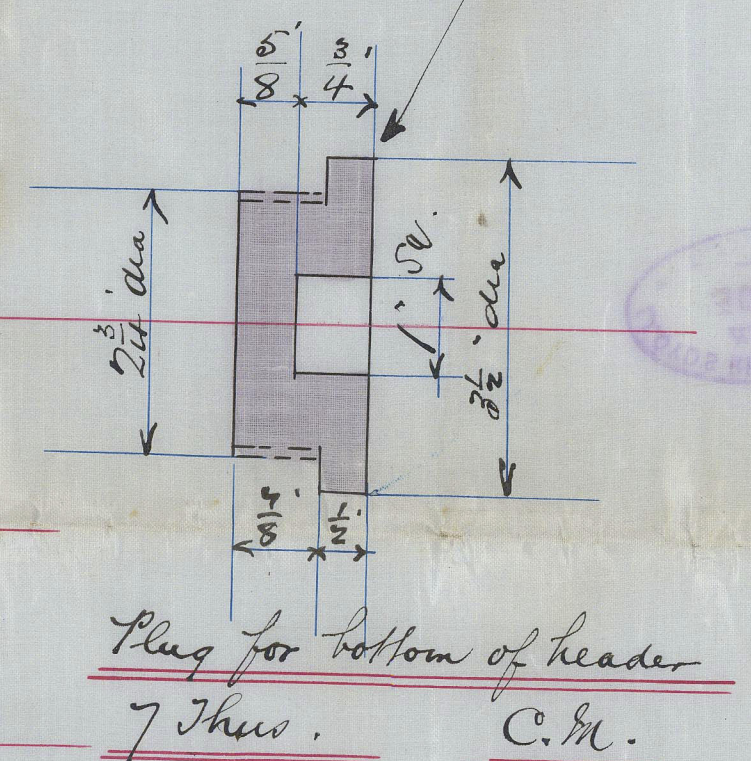 5/8' 3/4'
2 3/4' dia
1" Sq.
3 1/2' dia
7/8' 1/2'
Plug for bottom of header
7 Thus. C.M.